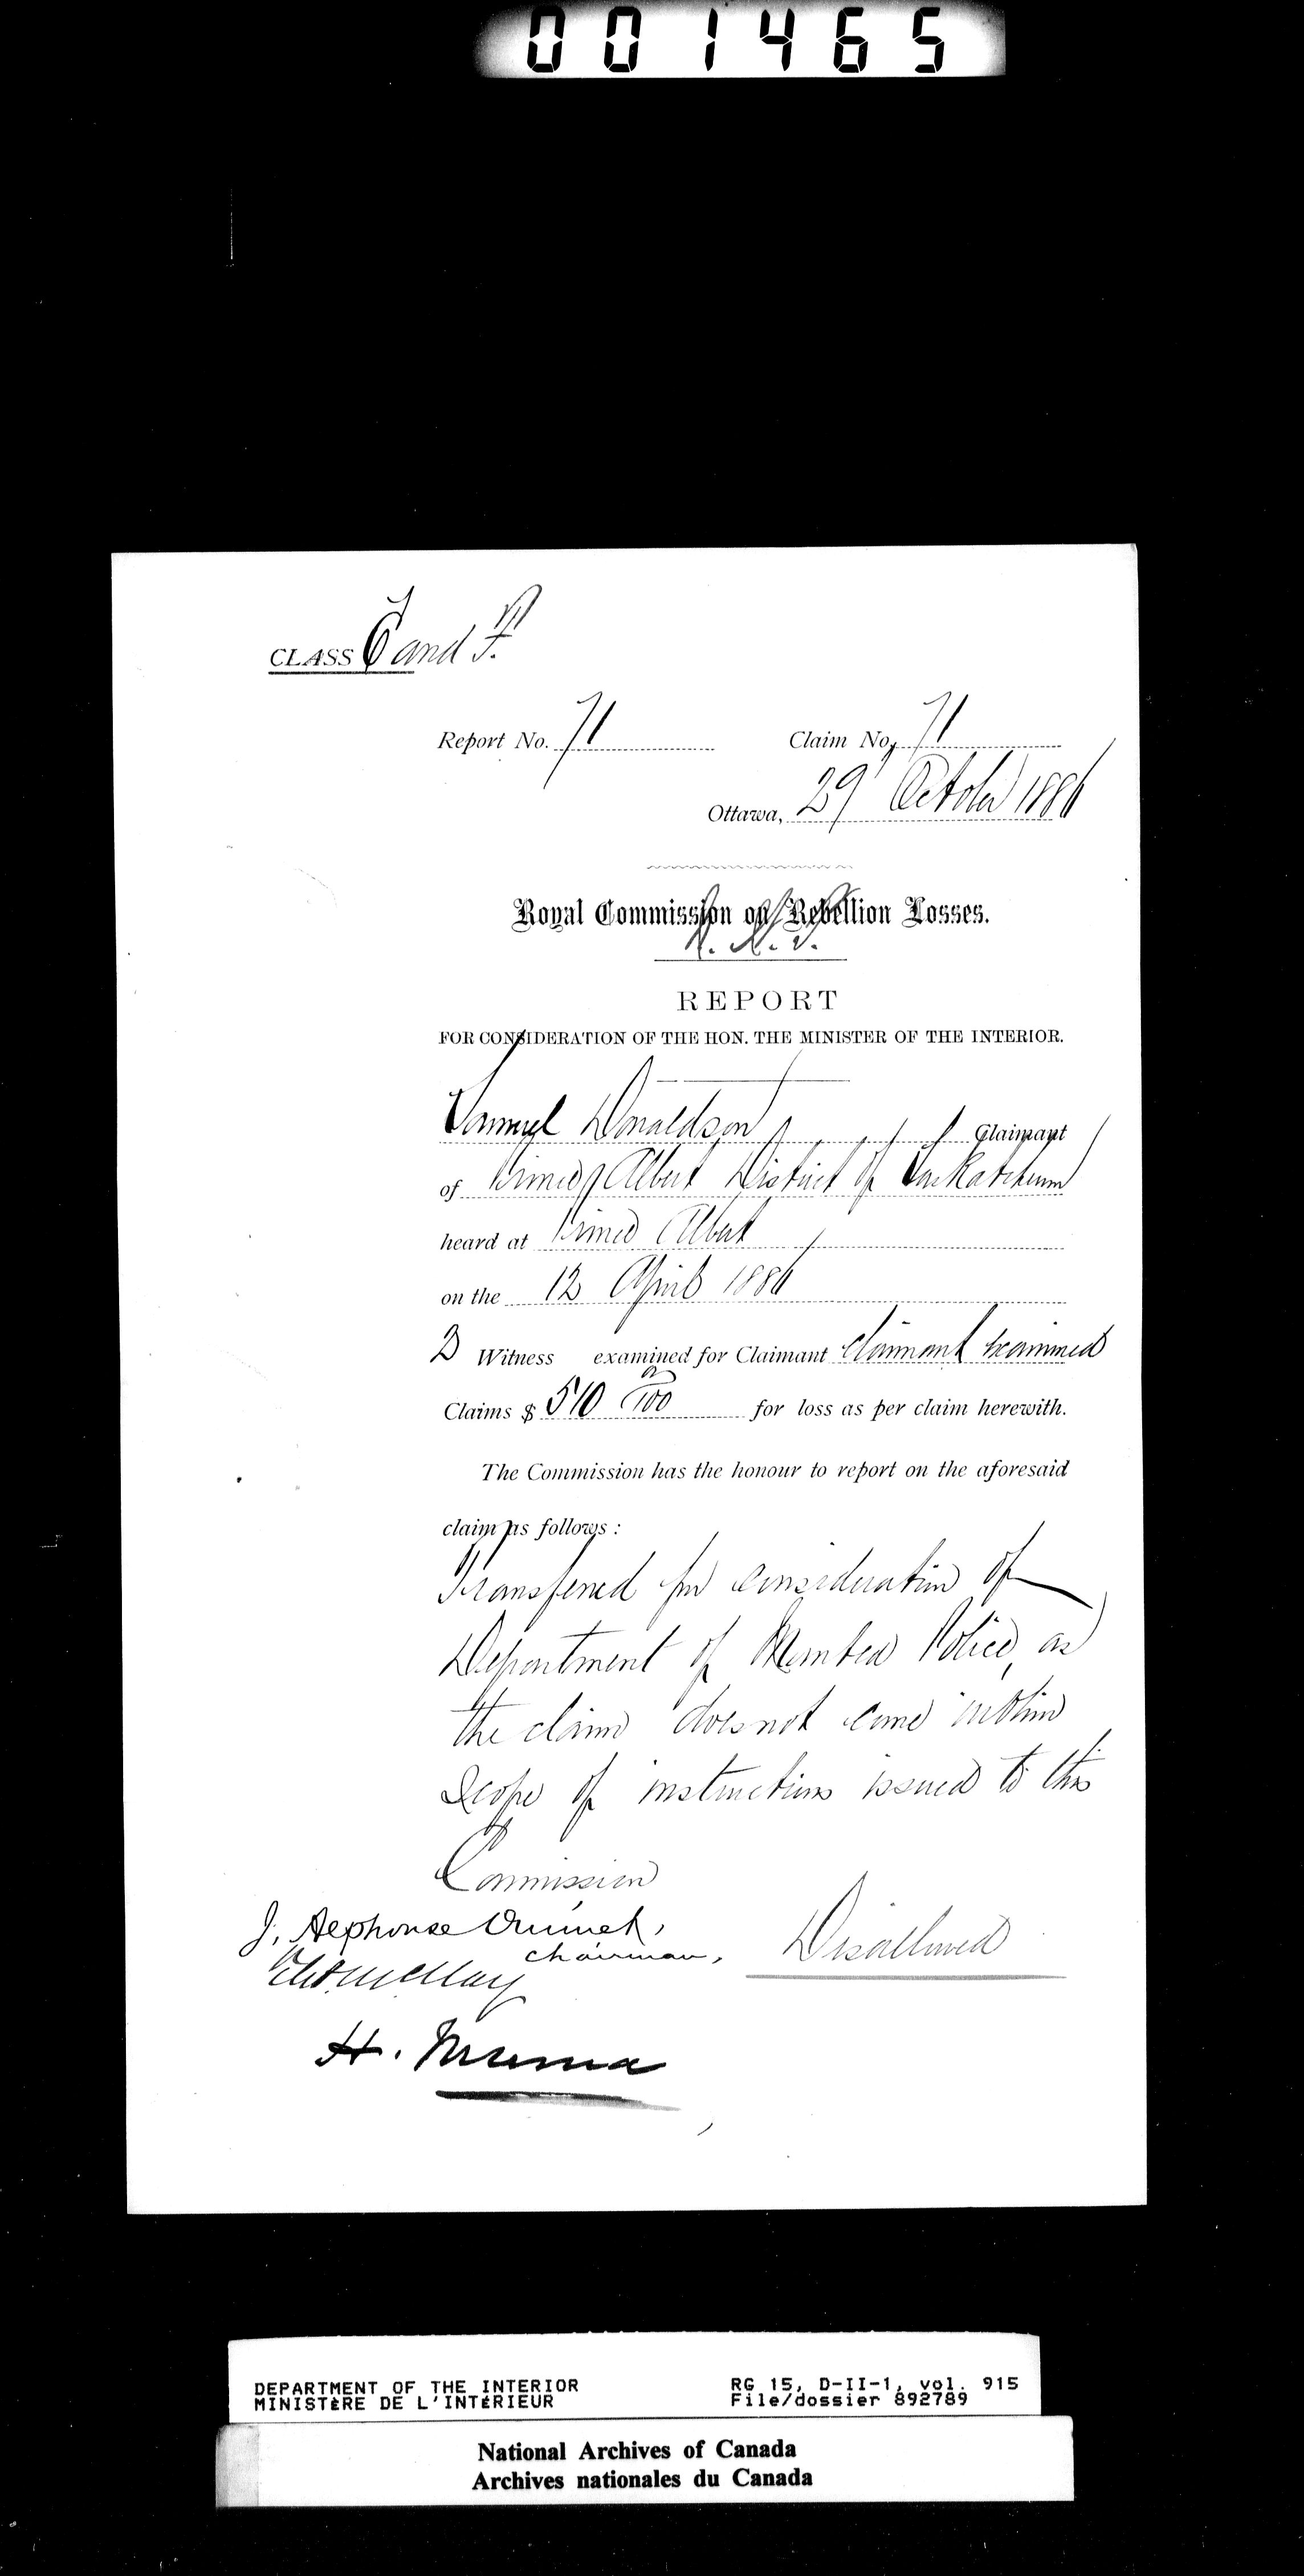 001465
CLASS 6 and F.
Report No. 71 Claim No. 71
Ottawa, 29 October 1886
Royal Commission on Rebellion Losses.
REPORT
FOR CONSIDERATION OF THE HON. THE MINISTER OF THE INTERIOR.
Samuel Donaldson Claimant
of Prince Albert District of Saskatchewan
heard at Prince Albert
on the 12 April 1886
2 Witness examined for Claimant Claimant examined
Claims $ 510 00/100 for loss as per claim herewith.
The Commission has the honour to report on the aforesaid
claim as follows :
Transferred for consideration of
Department of Mounted Police, as
the claim does not come within
scope of instructions issued to this
Commission
J. Alphonse Ouimet,
Chairman,
Disallowed
H. Muma
DEPARTMENT OF THE INTERIOR RG 15, D-II-1, vol. 915
MINISTÈRE DE L'INTÉRIEUR File/dossier 892789
National Archives of Canada
Archives nationales du Canada